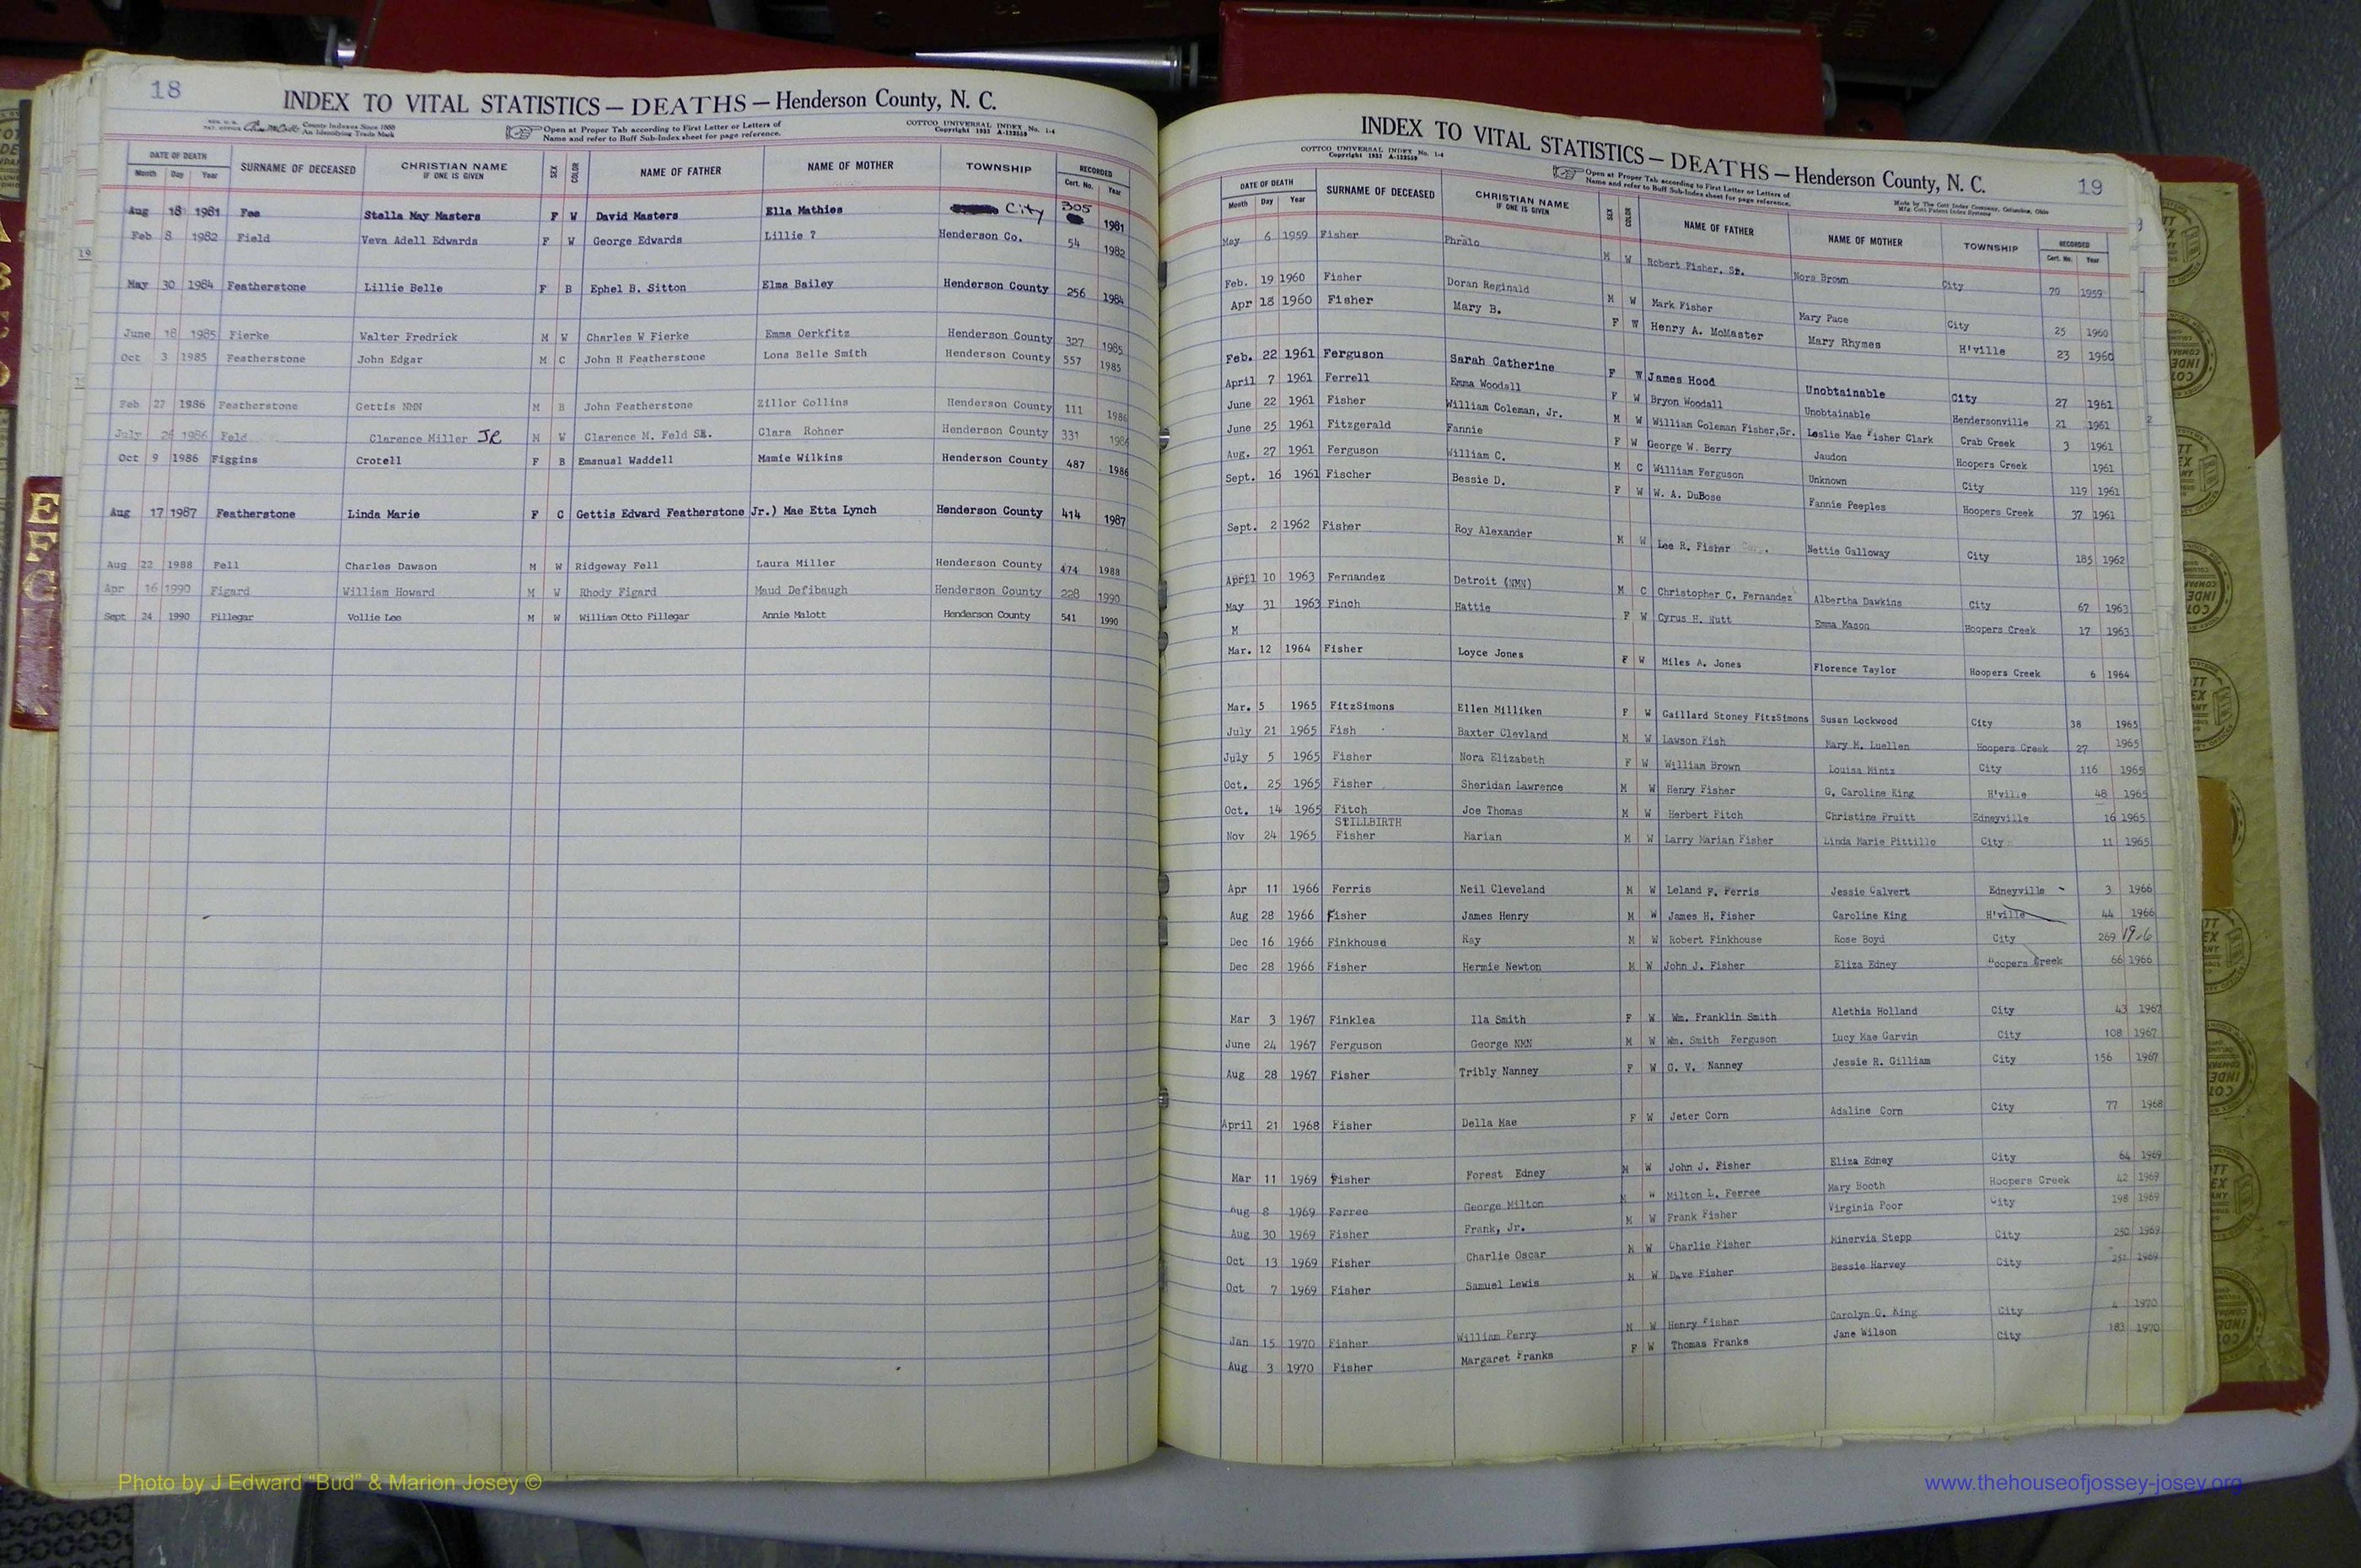 18
INDEX TO VITAL STATISTICS — DEATHS — Henderson County, N. C.
County Indexes Since 1888
An Identifying Trade Mark
Open at Proper Tab according to First Letter or Letters of
Name and refer to Buff Sub-Index sheet for page reference.
COTTCO UNIVERSAL INDEX No. 1-4
DATE OF DEATH SURNAME OF DECEASED CHRISTIAN NAME IF ONE IS GIVEN SEX COLOR NAME OF FATHER NAME OF MOTHER TOWNSHIP RECORDED
Month Day Year Cert. No. Year
Aug 18 1981 Fee Stella May Masters F W David Masters Ella Mathies City 305 1981
Feb 8 1982 Field Veva Adell Edwards F W George Edwards Lillie ? Henderson Co. 54 1982
May 30 1984 Featherstone Lillie Belle F B Ephel B. Sitton Elma Bailey Henderson County 256 1984
June 18 1985 Fierke Walter Fredrick M W Charles W Fierke Emma Oerkfitz Henderson County 327 1985
Oct 3 1985 Featherstone John Edgar M C John H Featherstone Lona Belle Smith Henderson County 557 1985
Feb 27 1986 Featherstone Gettis NMN M B John Featherstone Zillor Collins Henderson County 111 1986
July 1986 Feld Clarence Miller JR M W Clarence M. Feld SR. Clara Rohner Henderson County 331 1986
Oct 9 1986 Figgins Crotell F B Emanual Waddell Mamie Wilkins Henderson County 487 1986
Aug 17 1987 Featherstone Linda Marie F C Gettis Edward Featherstone Jr.) Mae Etta Lynch Henderson County 414 1987
Aug 22 1988 Fell Charles Dawson M W Ridgeway Fell Laura Miller Henderson County 474 1988
Apr 16 1990 Figard William Howard M W Rhody Figard Maud Defibaugh Henderson County 228 1990
Sept 24 1990 Fillegar Vollie Lee M W William Otto Fillegar Annie Malott Henderson County 541 1990
INDEX TO VITAL STATISTICS — DEATHS — Henderson County, N. C.
19
COTTCO UNIVERSAL INDEX No. 1-4
Open at Proper Tab according to First Letter or Letters of
Name and refer to Buff Sub-Index sheet for page reference.
Made by The Cott Index Company, Columbus, Ohio
DATE OF DEATH SURNAME OF DECEASED CHRISTIAN NAME IF ONE IS GIVEN SEX COLOR NAME OF FATHER NAME OF MOTHER TOWNSHIP RECORDED
Month Day Year Cert. No. Year
May 6 1959 Fisher Phralo M W Robert Fisher, Sr. Nora Brown City 70 1959
Feb. 19 1960 Fisher Doran Reginald M W Mark Fisher Mary Pace City 25 1960
Apr 18 1960 Fisher Mary B. F W Henry A. McMaster Mary Rhymes H'ville 23 1960
Feb. 22 1961 Ferguson Sarah Catherine F W James Hood Unobtainable City 27 1961
April 7 1961 Ferrell Emma Woodall F W Bryon Woodall Unobtainable Hendersonville 21 1961
June 22 1961 Fisher William Coleman, Jr. M W William Coleman Fisher,Sr. Leslie Mae Fisher Clark Crab Creek 3 1961
June 25 1961 Fitzgerald Fannie F W George W. Berry Jaudon Hoopers Creek 1961
Aug. 27 1961 Ferguson William C. M C William Ferguson Unknown City 119 1961
Sept. 16 1961 Fischer Bessie D. F W W. A. DuBose Fannie Peeples Hoopers Creek 37 1961
Sept. 2 1962 Fisher Roy Alexander M W Lee R. Fisher Nettie Galloway City 185 1962
April 10 1963 Fernandez Detroit (NMN) M C Christopher C. Fernandez Albertha Dawkins City 67 1963
May 31 1963 Finch Hattie F W Cyrus H. Nutt Emma Mason Hoopers Creek 17 1963
M
Mar. 12 1964 Fisher Loyce Jones F W Miles A. Jones Florence Taylor Hoopers Creek 6 1964
Mar. 5 1965 FitzSimons Ellen Milliken F W Gaillard Stoney FitzSimons Susan Lockwood City 38 1965
July 21 1965 Fish Baxter Clevland M W Lawson Fish Mary M. Luellen Hoopers Creek 27 1965
July 5 1965 Fisher Nora Elizabeth F W William Brown Louisa Mintz City 116 1965
Oct. 25 1965 Fisher Sheridan Lawrence M W Henry Fisher G. Caroline King H'ville 48 1965
Oct. 14 1965 Fitch Joe Thomas M W Herbert Fitch Christine Pruitt Edneyville 16 1965
STILLBIRTH
Nov 24 1965 Fisher Marian M W Larry Marian Fisher Linda Marie Pittillo City 11 1965
Apr 11 1966 Ferris Neil Cleveland M W Leland F. Ferris Jessie Calvert Edneyville 3 1966
Aug 28 1966 Fisher James Henry M W James H. Fisher Caroline King H'ville 44 1966
Dec 16 1966 Finkhouse Ray M W Robert Finkhouse Rose Boyd City 269
Dec 28 1966 Fisher Hermie Newton M W John J. Fisher Eliza Edney Hoopers Creek 66 1966
Mar 3 1967 Finklea Ila Smith F W Wm. Franklin Smith Alethia Holland City 43 1967
June 24 1967 Ferguson George NMN M W Wm. Smith Ferguson Lucy Mae Garvin City 108 1967
Aug 28 1967 Fisher Tribly Nanney F W G. V. Nanney Jessie R. Gilliam City 156 1967
April 21 1968 Fisher Della Mae F W Jeter Corn Adaline Corn City 77 1968
Mar 11 1969 Fisher Forest Edney M W John J. Fisher Eliza Edney City 64 1969
Aug 8 1969 Ferree George Milton M W Milton L. Ferree Mary Booth Hoopers Creek 42 1969
Aug 30 1969 Fisher Frank, Jr. M W Frank Fisher Virginia Poor City 198 1969
Oct 13 1969 Fisher Charlie Oscar M W Charlie Fisher Minervia Stepp City 250 1969
Oct 7 1969 Fisher Samuel Lewis M W Dave Fisher Bessie Harvey City 1969
Jan 15 1970 Fisher William Perry M W Henry Fisher Carolyn G. King City 4 1970
Aug 3 1970 Fisher Margaret Franks F W Thomas Franks Jane Wilson City 183 1970
E
F
G
Photo by J Edward “Bud” & Marion Josey ©
www.thehouseofjossey-josey.org